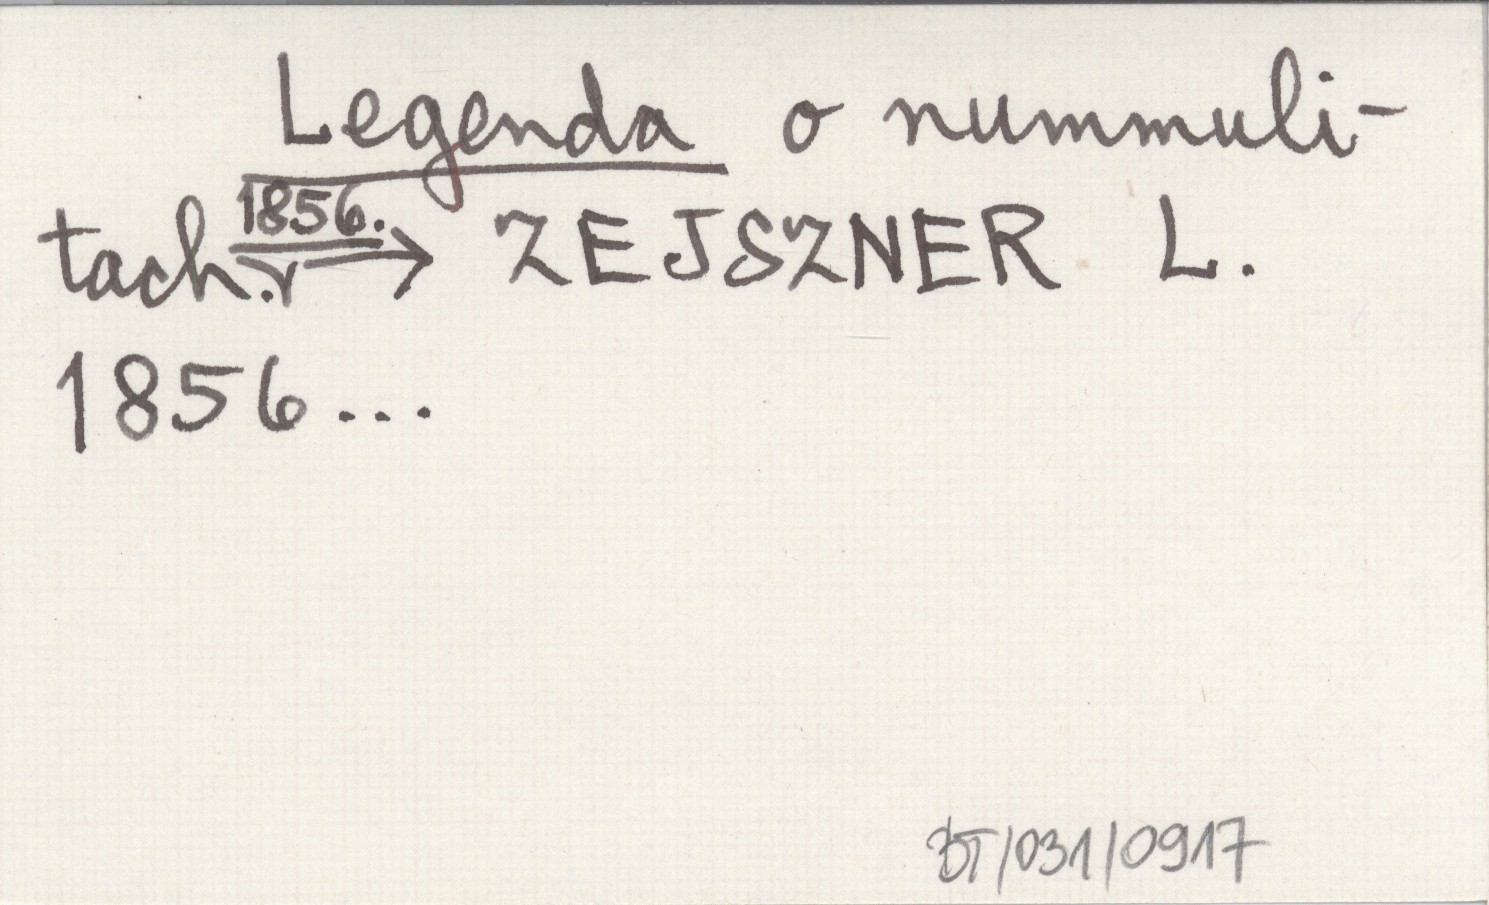 Legenda o nummuli-
tach. 1856. → ZEJSZNER L.
1856...
BT/031/0917